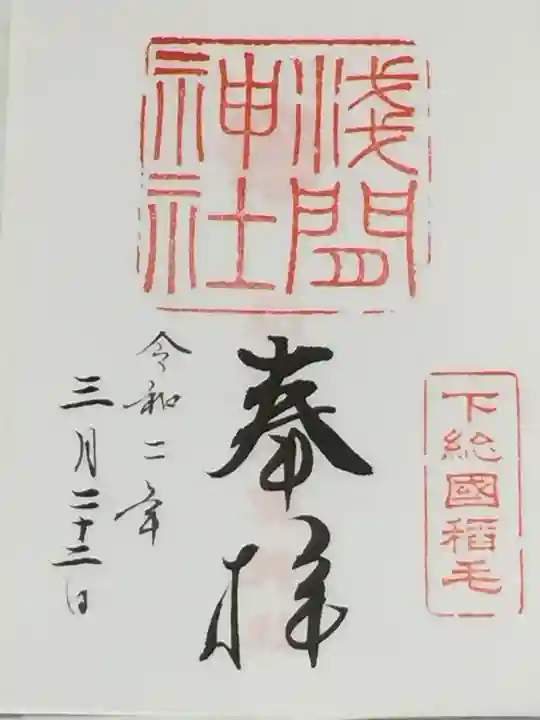 下総國稲毛
浅間
神社
奉拝
令和二年
三月二十二日